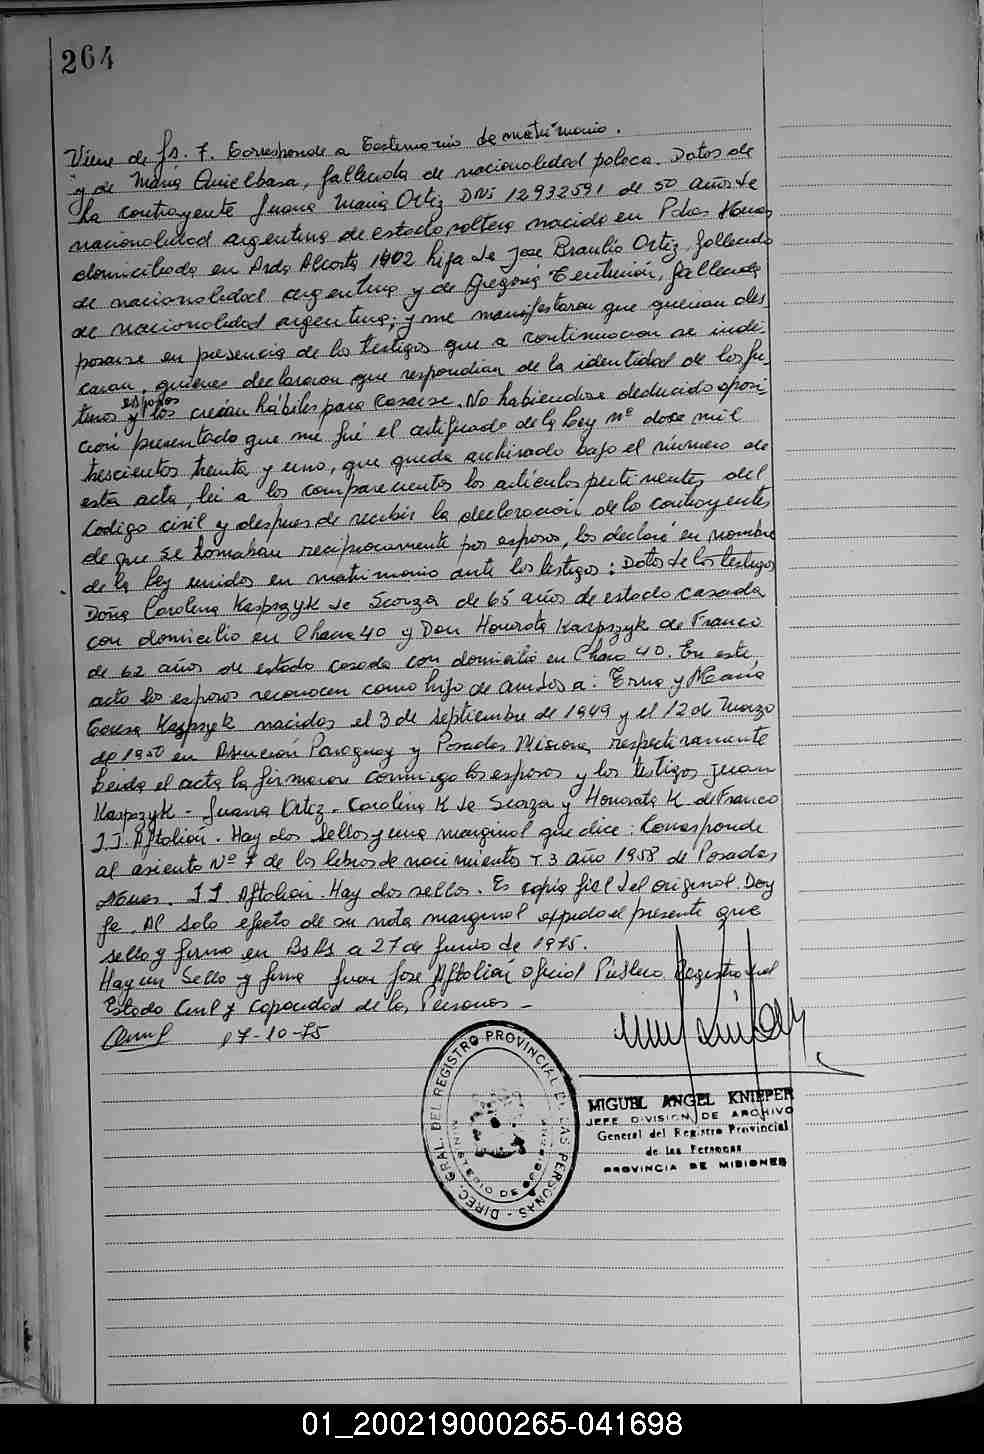 264
Viene de fs. 7. Corresponde a Testimonio de matrimonio.
"y de María fallecida de nacionalidad polaca. Datos de
la contrayente Juana Maria Ortiz DNI 12932591 de 50 años de
nacionalidad argentina de estado soltera nacida en Pdas Mnes
domiciliada en Avda Alcosta 1402 hija de Jose Braulio Ortiz, fallecido
de nacionalidad argentina y de Gregoria fallecida
de nacionalidad argentina; y me manifestaron que querian des
posarse en presencia de los testigos que a continuacion se indi-
caran, quienes declararon que respondian de la identidad de los fu-
turos esposos y los creian hábiles para casarse. No habiendose deducido oposi-
cion presentado que me fué el certificado de la Ley nº doce mil
trescientos treinta y uno, que queda archivado bajo el número de
esta acta, lei a los comparecientes los artículos pertinentes del
Codigo civil y despues de recibir la declaración de los contrayentes
de que se tomaban reciprocamente por esposos, los declaré en nombre
de la Ley unidos en matrimonio ante los testigos: Datos de los testigos
Doña Carolina Kaspszyk de Scorza de 65 años de estado casada
con domicilio en Chaca 40 y Don Honorata Kaspszyk de Franco
de 62 años de estado casada con domicilio en Chaca 40. En este
acto los esposos reconocen como hijo de ambos a: Erna y Maria
Teresa Kaspszyk nacidas el 3 de septiembre de 1949 y el 12 de Marzo
de 1950 en Asuncion Paraguay y Posadas Misiones respectivamente
Leida el acta la firmaron conmigo los esposos y los testigos Juan
Kaspszyk - Juana Ortiz - Carolina K de Scorza y Honorata K. de Franco
J.J. Aftalión. Hay dos sellos y una marginal que dice: Corresponde
al asiento Nº 7 de los libros de nacimientos T 3 año 1958 de Posadas
Mnes. J J Aftalion. Hay dos sellos. Es copia fiel del original. Doy
fe. Al solo efecto de su nota marginal expido el presente que
sello y firmo en Bs As a 27 de Junio de 1975.
Hay un Sello y firma Juan Jose Aftalión oficial Público Registro del
Estado Civil y Capacidad de las Personas -
17-10-75
DIREC. GRAL. DEL REGISTRO PROVINCIAL DE LAS PERSONAS -
MINISTERIO DE GOBIERNO
MIGUEL ANGEL KNIEPER
JEFE DIVISION DE ARCHIVO
General del Registro Provincial
de las Personas
PROVINCIA DE MISIONES
01_200219000265-041698